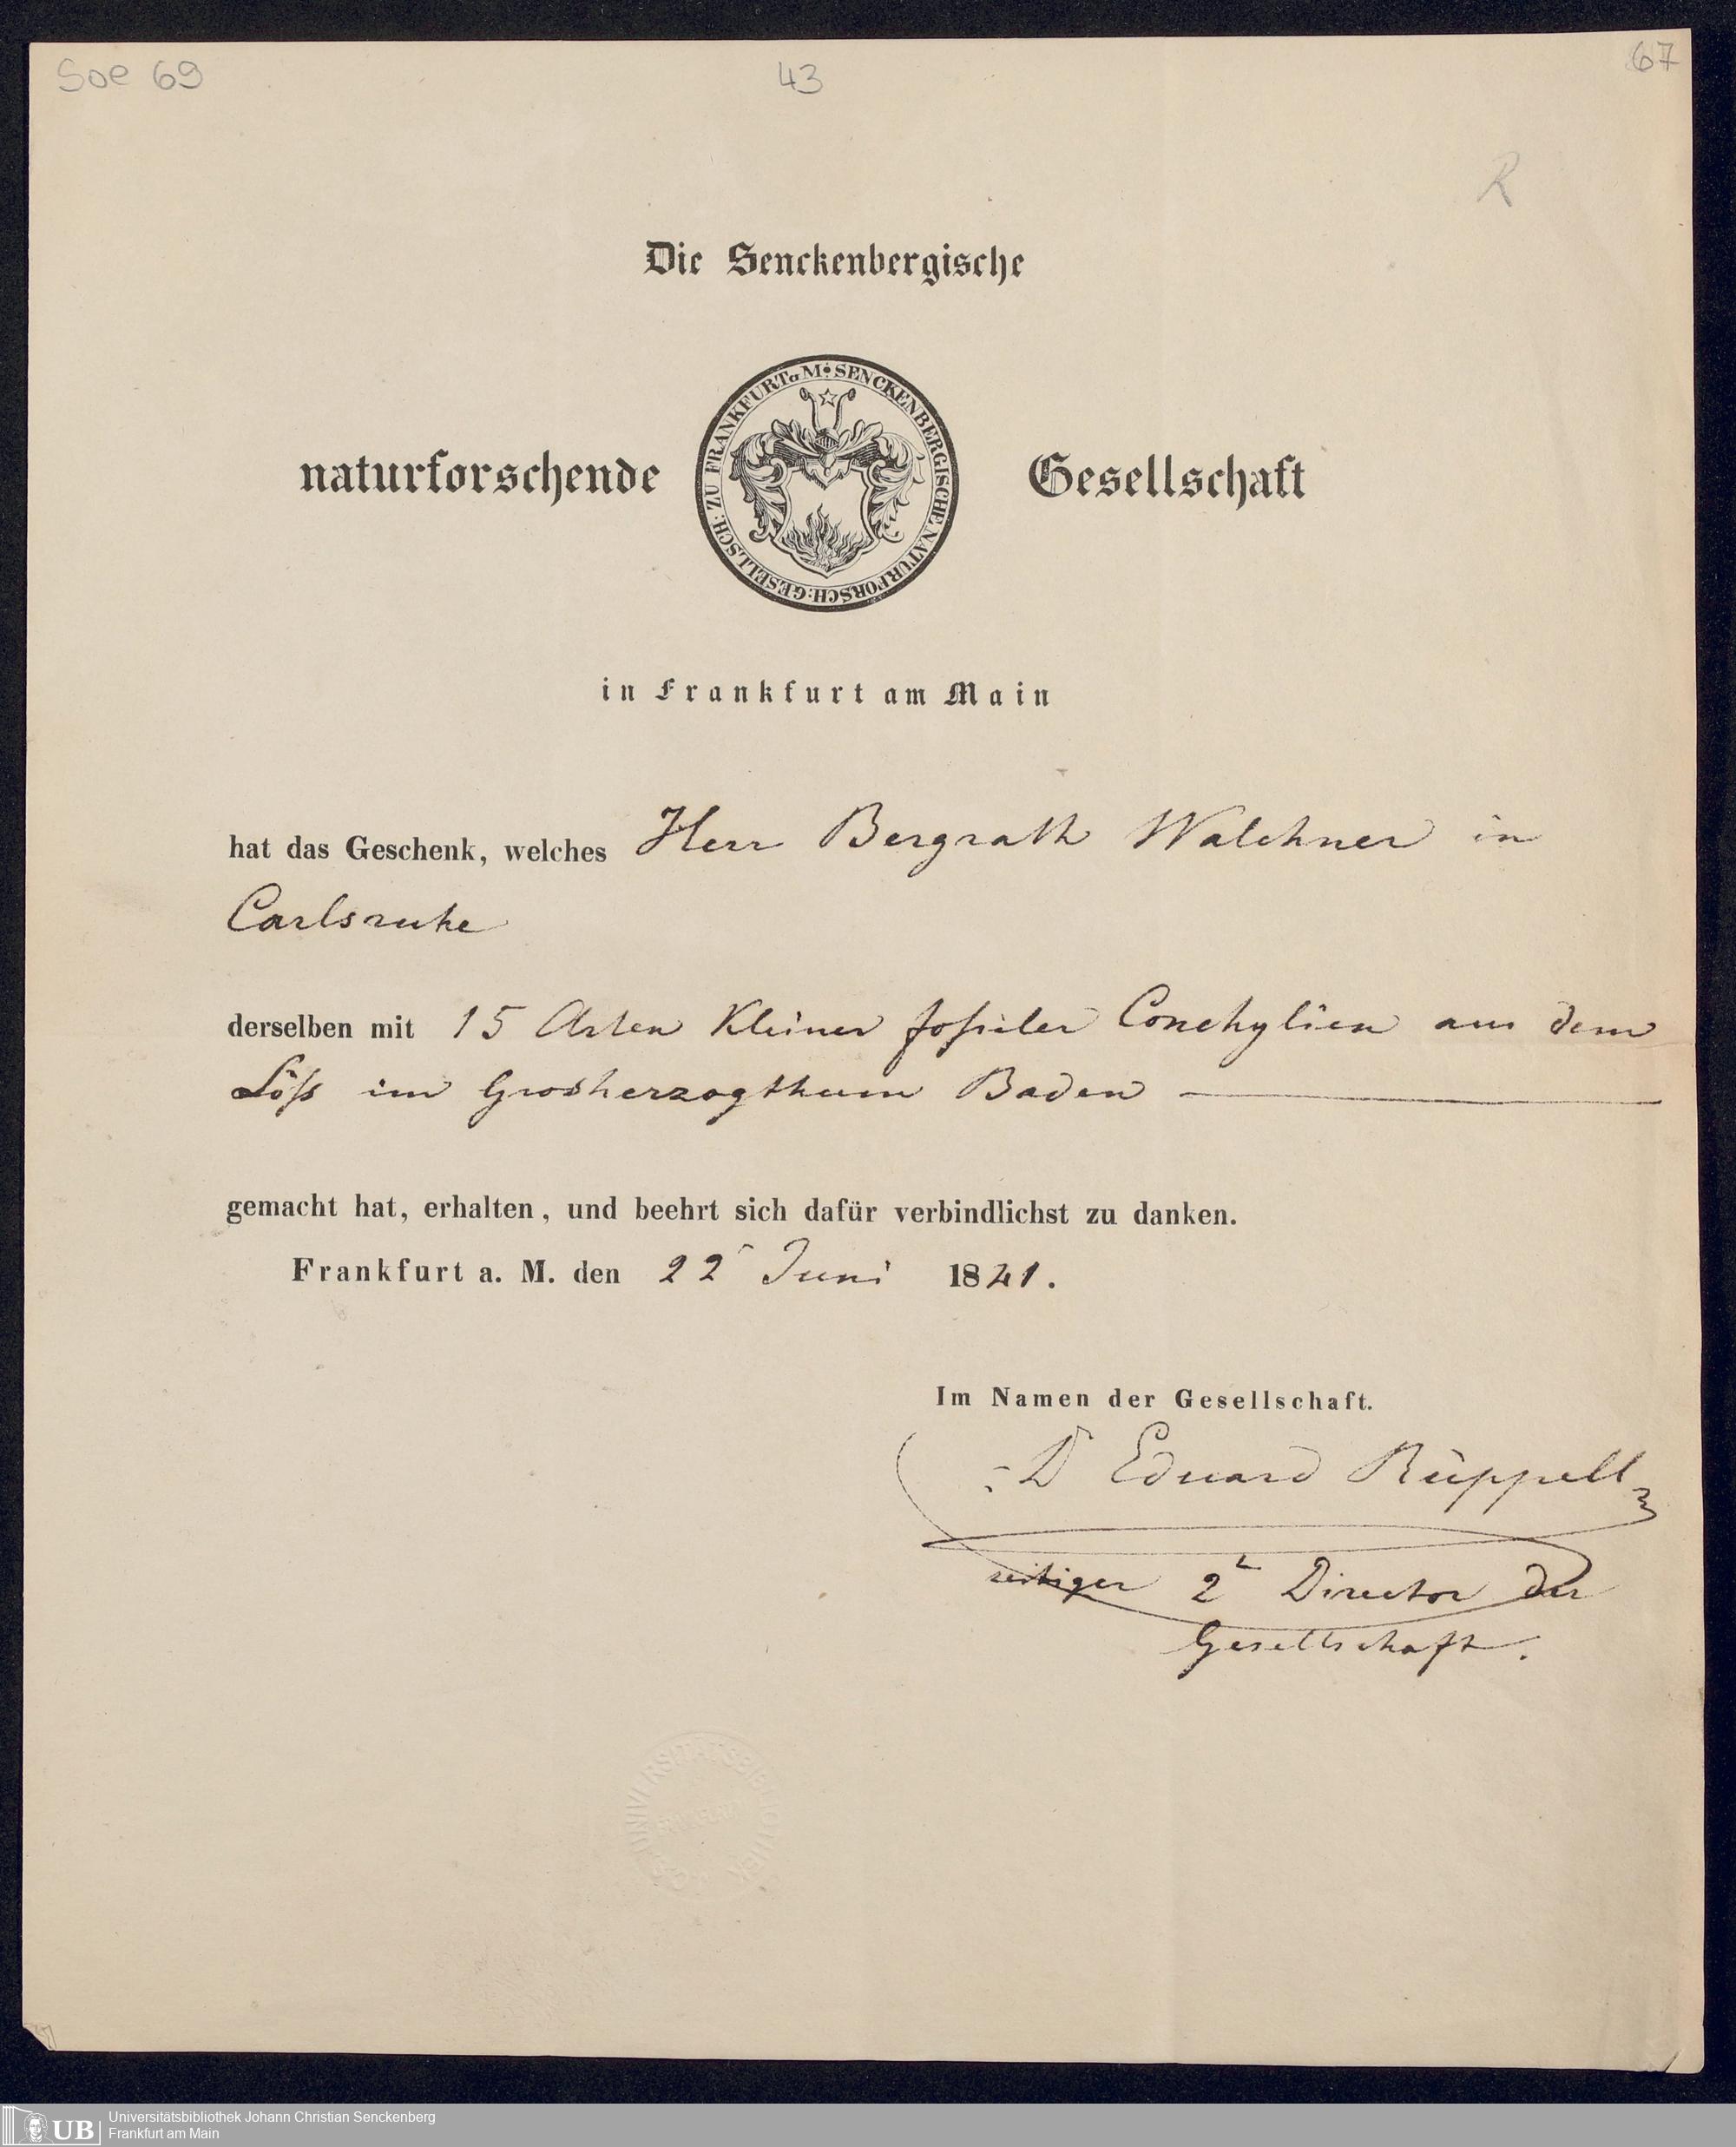 Soe 69
43
67
R
Die Senckenbergische
naturforschende
SENCKENBERGISCHE NATURFORSCH: GESELLSCH: ZU FRANKFURT a M
Gesellschaft
in Frankfurt am Main
hat das Geschenk, welches Herr Bergrath Walchner in
Carlsruhe
derselben mit 15 Arten Kleiner foßiler Conchylien aus dem
Löß im Grosherzogthum Baden
gemacht hat, erhalten, und beehrt sich dafür verbindlichst zu danken.
Frankfurt a. M. den 22r Juni 1841.
Im Namen der Gesellschaft.
Dr Eduard Rüppell
zeitiger 2r Director der
Gesellschaft.
UNIVERSITÄTSBIBLIOTHEK
UB
Universitätsbibliothek Johann Christian Senckenberg
Frankfurt am Main